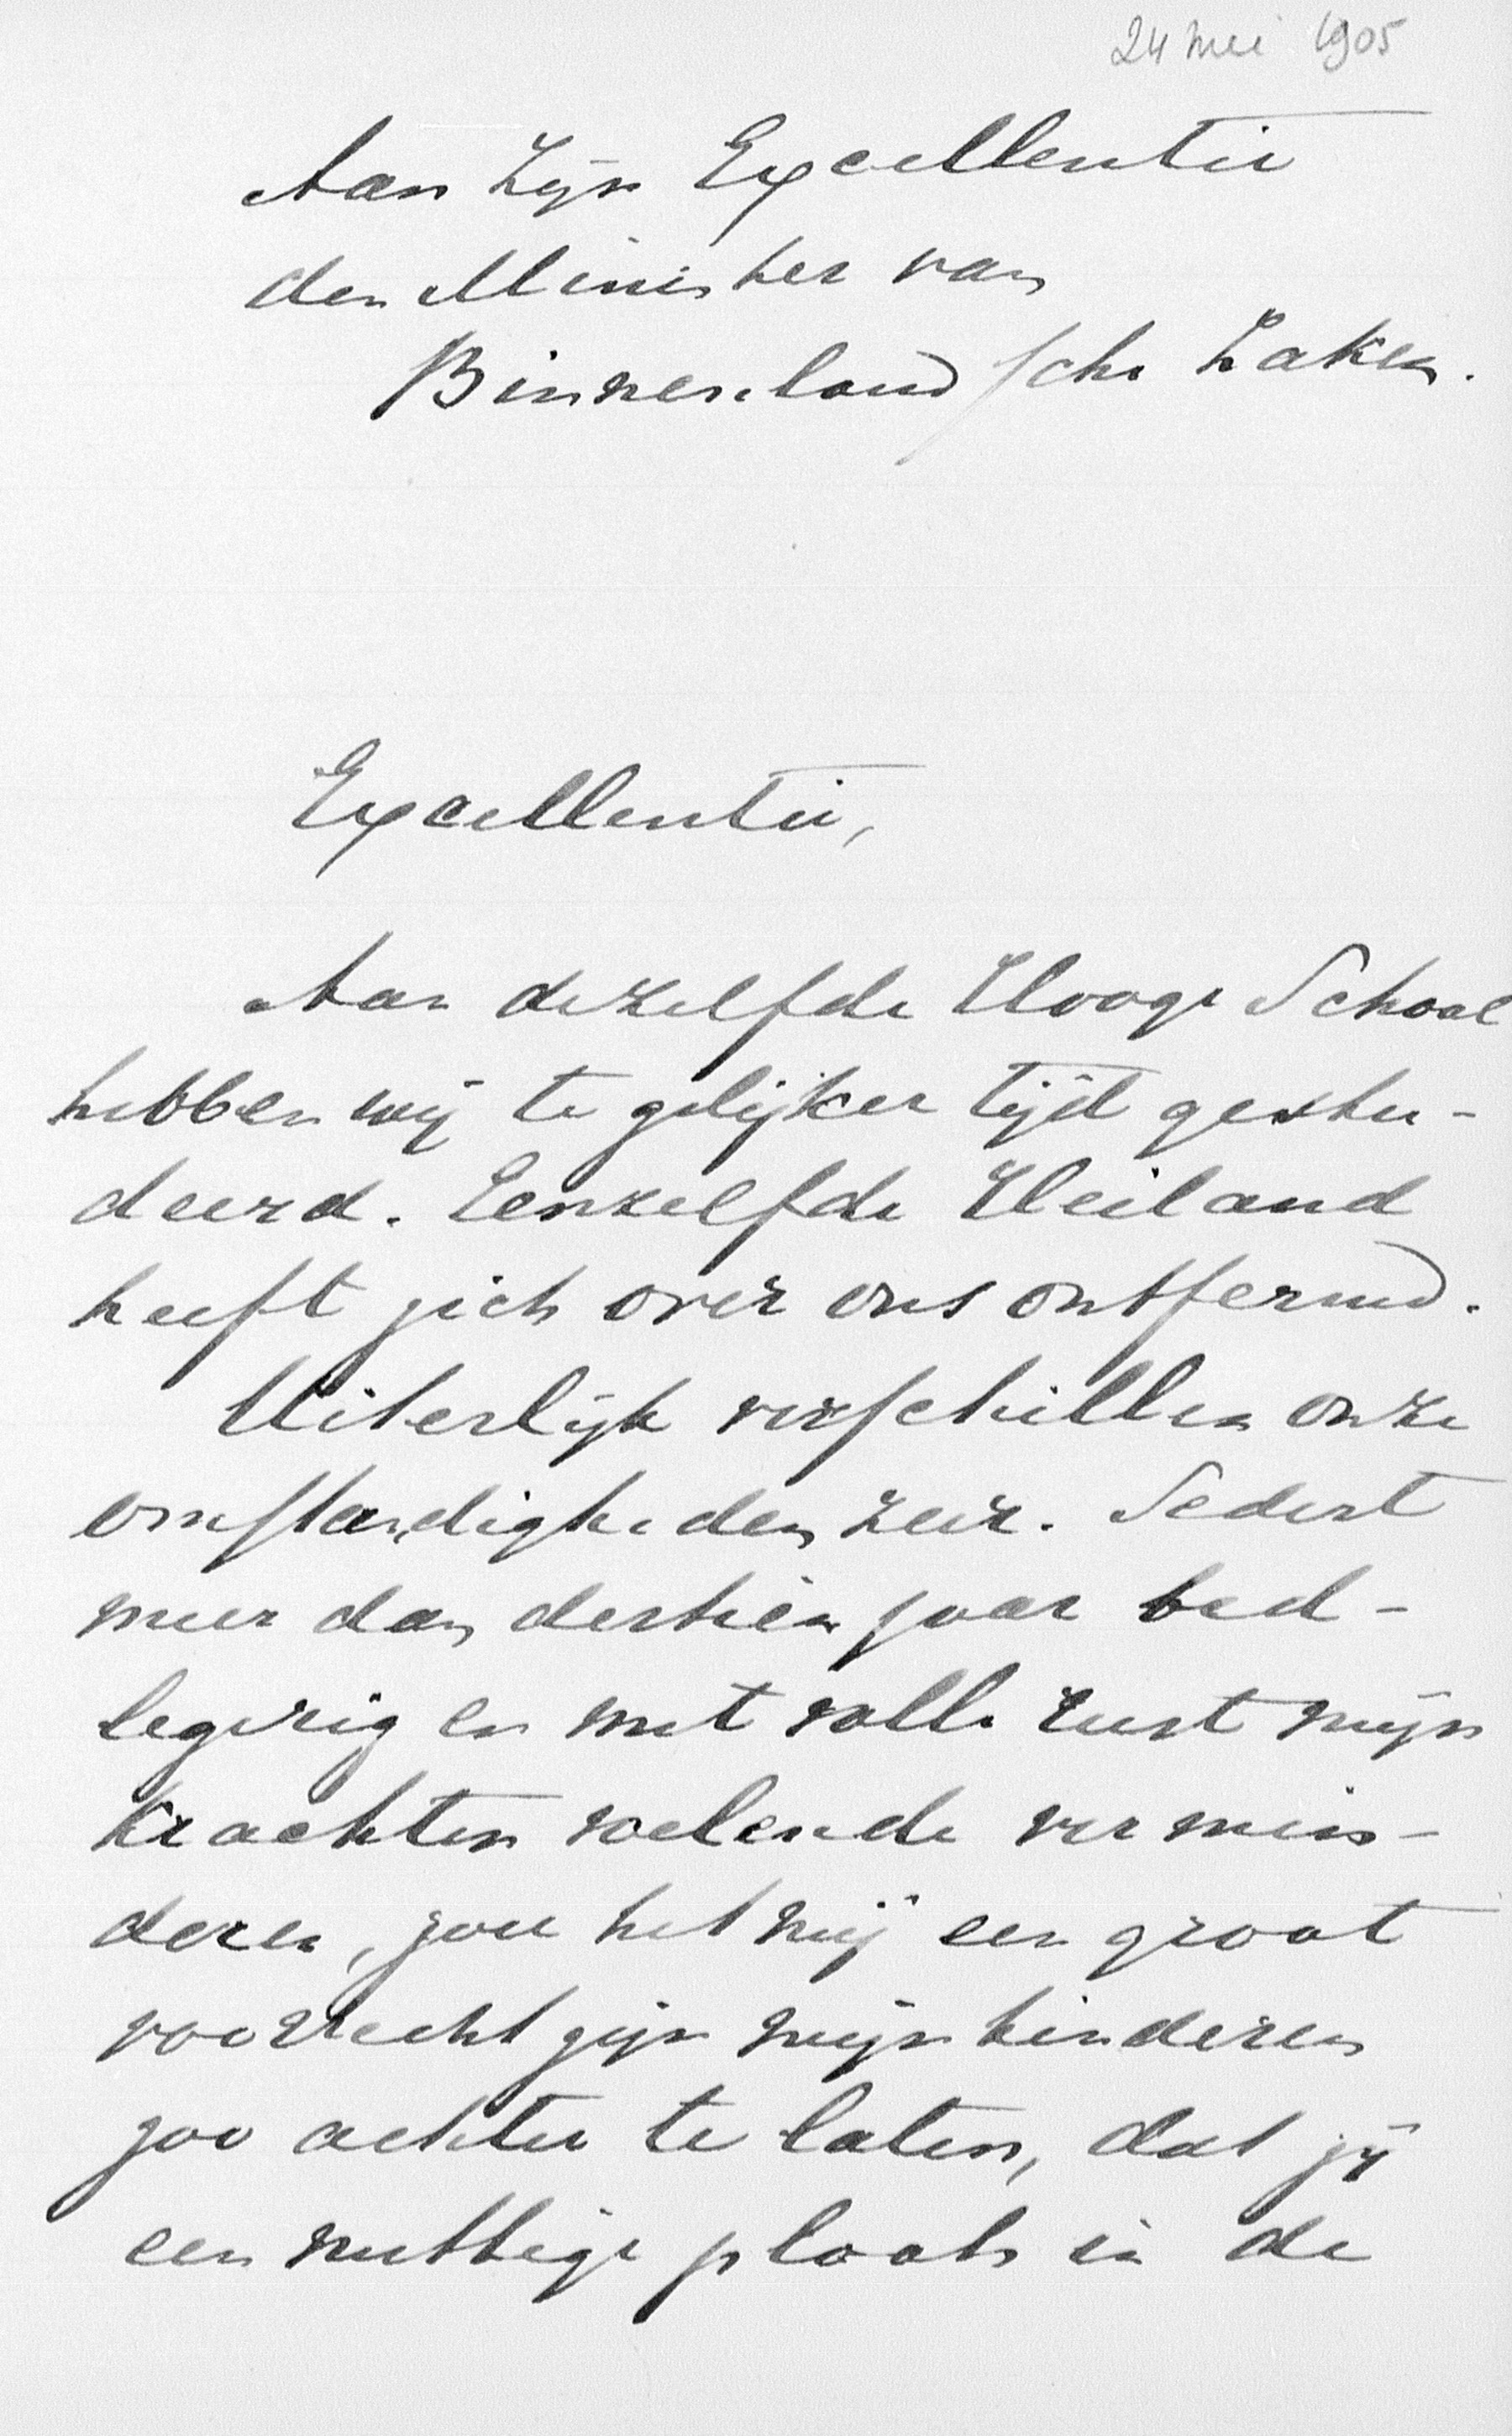 24 mei 1905
Aan Zijn Excellentie
den Minister van
Binnenlandsche Zaken.
Excellentie,
Aan dezelfde Hooge School
hebben wij te gelijker tijd gestu-
deerd. Eenzelfde Heiland
heeft zich over ons ontfermd.
Uiterlijk verschillen onze
omstandigheden zeer. Sedert
meer dan dertien jaar bed-
legerig en met volle rust mijn
krachten voelende vermin-
deren, zou het mij een groot
voorrecht zijn mijn kinderen
zoo achter te laten, dat zij
een nuttige plaats in de